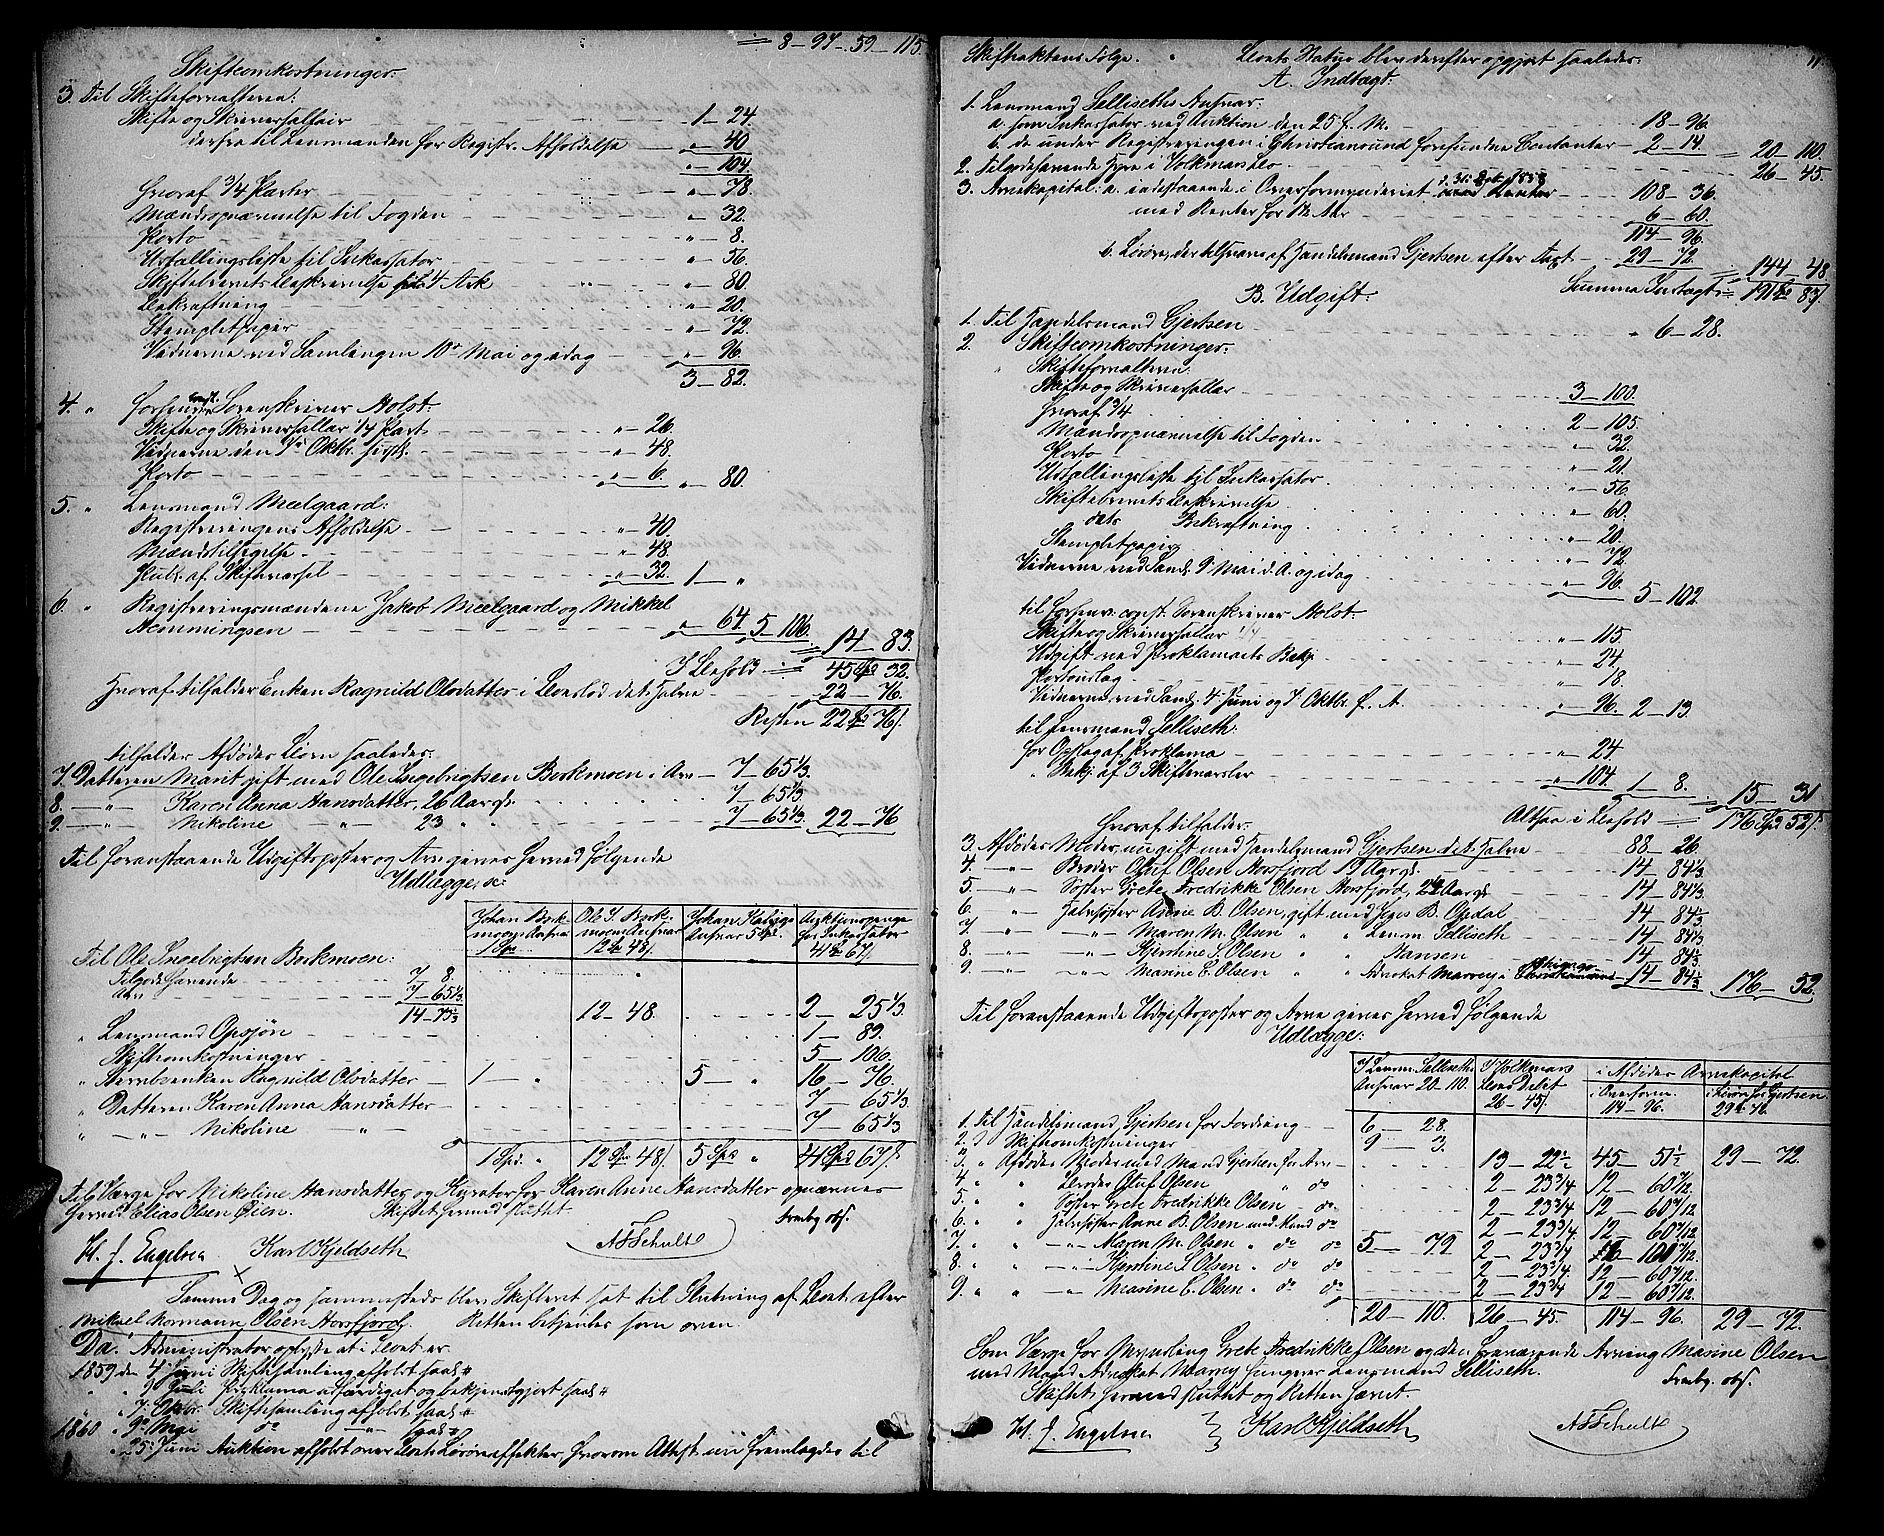 = 8 - 97 - 59 - 115
Skifteomkostninger:
3. Til Skifteforvalteren:
Skifte og Skriversallair 1 - 24.
derfra til Lensmanden for Registr. Afholdelse " - 40
" - 104
Hvoraf 3/4 Parter " - 78.
Mændsopnævnelse til Fogden " - 32.
Porto " - 8.
Udstallingsliste til Inkassator " - 56.
Skiftebrevets Beskrivelse 4 Ark " - 80.
Bekræftning " - 20.
Stempletpapir " - 72.
Vidnerne ved Samlingen 10de Mai og idag " - 96.
3 - 82.
4. " forhenv. const. Sorenskriver Holst:
Skifte og Skriversallar 1/4 Part " - 26
Vidnerne den 7de Oktbr. " - 48.
Porto " - 6. " - 80.
5. " Lensmand Meelgaard:
Registreringens Afholdelse " - 40.
Mændstilsigelse " - 48.
Publ. af Skiftevarsel " - 32. 1 - "
6. " Registreringsmændene Jakob Meelgaard og Mikkel
Hemmingsen " - 64. 5 - 106. = 14 - 83.
I Behold = 45 Spd 32.
Hvoraf tilfalder Enken Ragnild Olsdatter i Boeslod det Halve 22 - 76.
Resten 22 Spd 76 s.
tilfalder Afdødes Børn saaledes:
7. Datteren Marit gift med Ole Ingebrigtsen Borkmoen i Arv 7 - 65 1/3.
8. — " — Karen Anna Hansdatter, 26 Aar gl. 7 - 65 1/3
9. — " — Nikoline — " — 23 " 7 - 65 1/3. 22 - 76
Til foranstaaende Udgiftsposter og Arv gjøres herved følgende
Udlægge, sc:
Johan Bork- | Ole I. Bork- | Johan | Auktionspenge
moens Ansvar | moens Ansvar | Ansvar 5 Spd. | hos Inkassator
1 Spd. | 12 Spd 48 s. | 41 Spd 67 s.
Til Ole Ingebrigtsen Borkmoen:
Tilgodehavende 7 8.
Arv 7 - 65 1/3
14 - 73 1/3 12 - 48. 2 - 25 1/3.
" Lensmand Opsjøn 1 - 89.
" Skifteomkostninger 5 - 106.
" Stervboenken Ragnild Olsdatter 1 - " 5 - " 16 - 76.
" Datteren Karen Anna Hansdatter 7 - 65 1/3.
" — " — Nikoline " 7 - 65 1/3.
1 Spd. " 12 Spd 48 s. 5 Spd " 41 Spd 67 s.
Til Værge for Nikoline Hansdatter og Kurator for Karen Anne Hansdatter opnævnes
herved Elias Olsen Øien. Skiftet herved sluttet.
Fremby obs.
H. J. Engelsen Karl Kjeldseth A F Schult
Samme Dag og sammesteds blev Skifteret sat til Slutning af Boet efter
Mikael Normann Olsen Horsfjord. Retten betjentes som oven.
Da: Administrator oplyste at i Boet er
1859 den 4 Juni Skiftesamling afholdt saal.
" " 9 Juli Proklama udfærdiget og bekjendtgjort saal.
" " 7 Oktbr. Skiftesamling afholdt saal.
1860 " 9de Maj do — " — saal.
" 25: Juni Auktion afholdt over Boets Løsøreeffekter, hvorom Attest nu fremlagdes til
Skifteaktens Følge. " Boets Status blev derefter opgjort saaledes:
A. Indtægt:
1. Lensmand Selliseths Ansvar:
a. som Inkassator ved Auktion den 25 f. M. 18 - 96.
b. de under Registreringen i Christiansund forefundne Contanter 2 - 14. = 20 - 110.
2. Tilgodehavende hos i Volkmars Bo 26 - 45
3. Arvekapital: a. indestaaende i Overformynderiet 108 - 36.
med Renter for 1 1/2 Aar 6 - 60.
114 - 96.
b. Løsøre, der tilsvares af Handelsmand Gjertsen efter Taxt 29 - 72. = 144 - 48
Summa Indtægt = 191 Spd 83 s.
B. Udgift:
1. Til Handelsmand Gjertsen " 6 - 28.
2. Skifteomkostninger:
" Skifteforvalteren:
Skifte og Skriversallar 3 - 100.
hvoraf 3/4 2 - 105.
Mændsopnævnelse til Fogden " - 32.
Porto " - 21
Udstallingsliste til Inkassator " - 56
Skiftebrevets Beskrivelse " - 60.
dets Bekræftning " - 20.
Stempletpapir " - 72
Vidnerne ved Saml. 9 Mai d. A. og idag " - 96. 5 - 102.
til Forhenv. const. Sorenskriver Holst:
Skifte og Skriversallar 1/4 " - 115.
Udgift ved Proklamaets Bekj. " - 24.
Portoudlag " - 18.
Vidnerne ved Saml. 4de Juni og 7 Oktbr. f. A. " - 96. 2 - 13.
til Lensmand Sellisett:
for Opslag af Proklama " - 24.
" Bekj. af 3 Skiftevarsler " - 104. 1 - 8. = 15 - 31
Altsaa i Behold = 176 Spd 52 s.
Hvoraf tilfalder:
3. Afdødes Moder, nu gift med Handelsmand Gjertsen det Halve 88 - 26.
4. — " — Broder Oluf Olsen Horsfjord 19 Aar gl. 14 - 84 1/3
5. — " — Søster Grete Fredrikke Olsen Horsfjord, Aar gl. 14 - 84 1/3.
6. — " — Halvsøster Anne B. Olsen, gift med B. Opdal 14 - 84 1/3
7. — " — — " — Maren M. Olsen " " Lensm. Sellisett 14 - 84 1/3
8. — " — — " — Hjertine S. Olsen " " Hansen 14 - 84 1/3
9. — " — — " — Marine E. Olsen " " Advokat Marvey i Chicago 14 - 84 1/3 176 - 52.
Til foranstaaende Udgiftsposter og Arve gjøres herved følgende
Udlægge:
I Lensm. Selliseths | I Volkmars | i Afdødes Arvekapital
Ansvar 20 - 110. | Boes Debit | i Overform. | i Løsøre hos Gjertsen
26 - 45 s. | 114 - 96. | 29 - 72.
1. Til Handelsmand Gjertsen for Fordring 6 - 28.
2. " Skifteomkostninger 9 - 3.
3. " Afdødes Moder med Mand Gjertsen for Arv 13 - 22 1/2 45 - 51 1/2 29 - 72.
4. " " Broder Oluf Olsen " do 2 - 23 3/4 12 - 60 7/12.
5. " " Søster Grete Fredrikke Olsen " do 2 - 23 3/4. 12 - 60 7/12.
6. " " Halvsøster Anne B. Olsen med Mand do 2 - 23 3/4. 12 - 60 7/12.
7. " " — " — Maren M. Olsen " do do 5 - 79 2 - 23 3/4 100 7/12.
8. " " — " — Hjertine S. Olsen " do do 2 - 23 3/4. 12 - 60 7/12.
9. " " — " — Marine E. Olsen " do do 2 - 23 3/4 12 - 60 7/12.
20 - 110. 26 - 45. 114 - 96. 29 - 72.
Som Værge for Myndling Grete Fredrikke Olsen og den fraværende Arving Marine Olsen
med Mand Advokat Marvey fungerer Lensmand Selliseth.
Fremby obs.
Skiftet hermed sluttet og Retten hævet.
H. J. Engelsen Karl Kjeldseth A F Schult